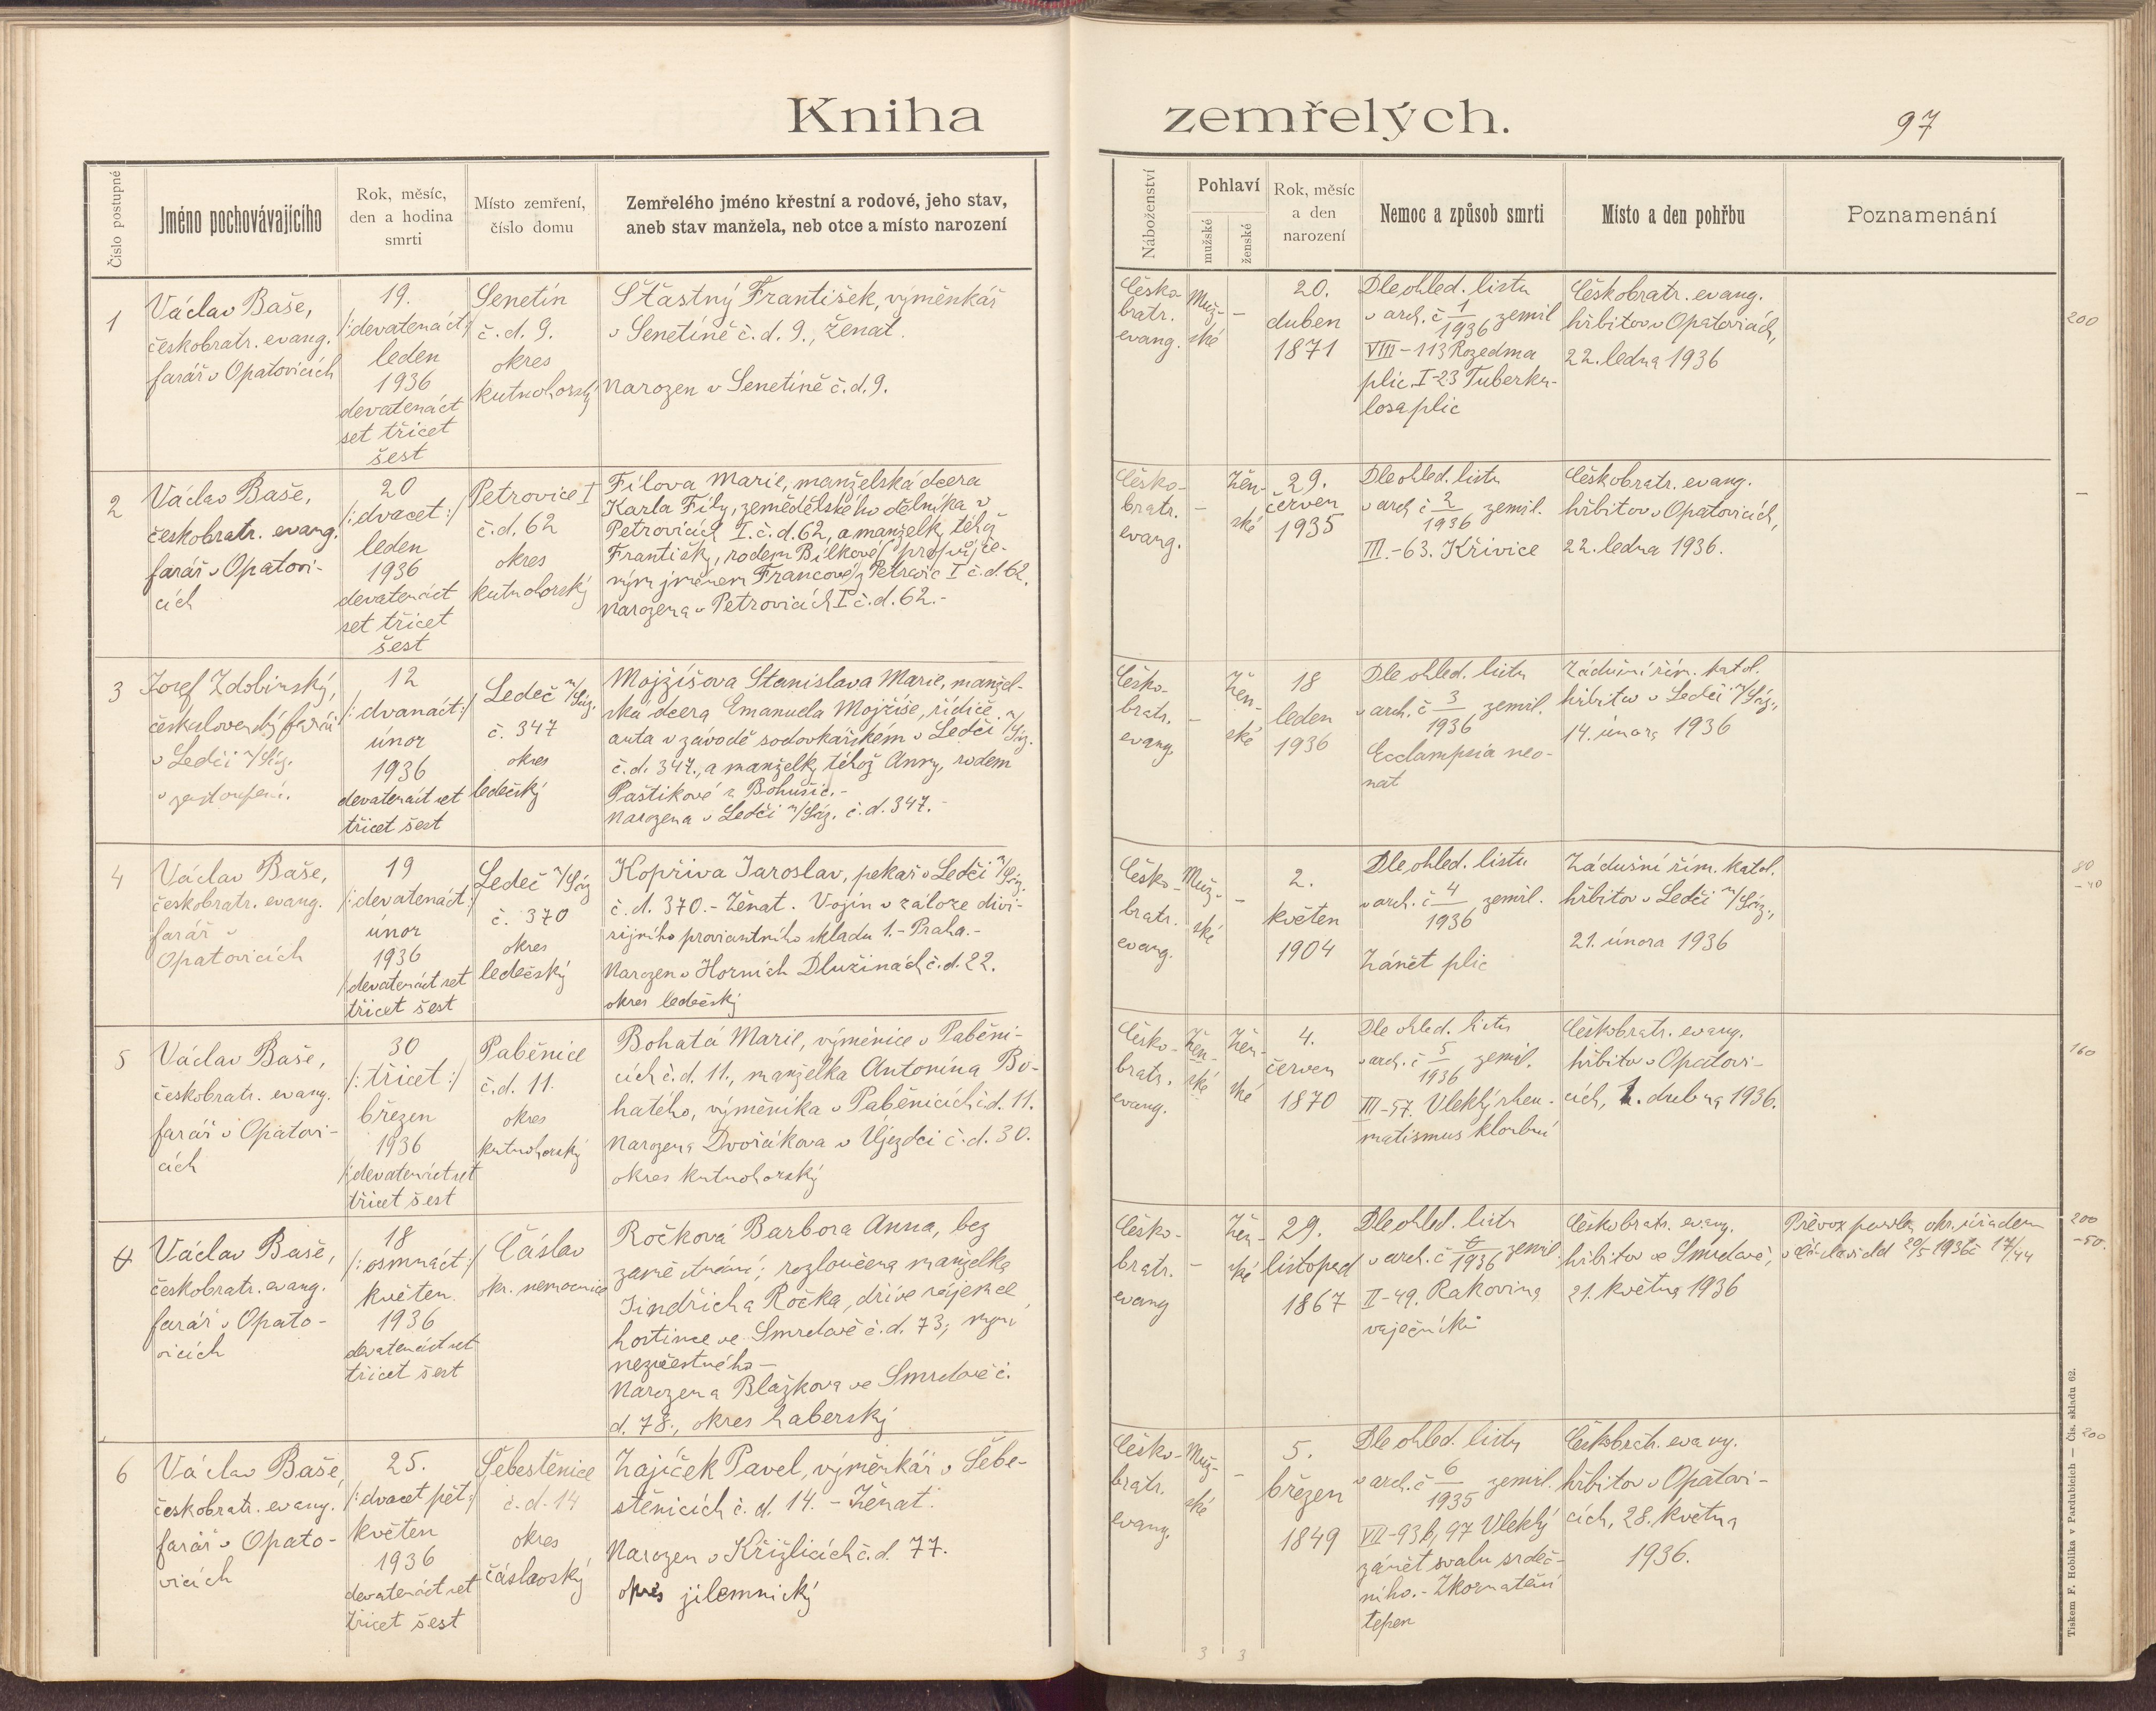 Kniha zemřelých.
97
Číslo postupné
Jméno pochovávajícího
Rok, měsíc,
den a hodina
smrti
Místo zemření,
číslo domu
Zemřelého jméno křestní a rodové, jeho stav,
aneb stav manžela, neb otce a místo narození
Náboženství
Pohlaví
mužské
ženské
Rok, měsíc
a den
narození
Nemoc a způsob smrti
Místo a den pohřbu
Poznamenání
1
Václav Baše,
českobratr. evang.
farář v Opatovicích
19.
/:devatenáct:/
leden
1936
devatenáct
set třicet
šest
Senetín
č. d. 9.
okres
kutnohorský
Šťastný František, výměnkář
v Senetíně č. d. 9., ženat.
Narozen v Senetíně č. d. 9.
Česko-
bratr.
evang.
Muž-
ské
-
20.
duben
1871
Dle ohled. listu
v arch. č 1/1936 zemřel
VIII-113 Rozedma
plic. I-23 Tuberku-
losa plic
Českobratr. evang.
hřbitov v Opatovicích,
22. ledna 1936
200
2
Václav Baše,
českobratr. evang.
farář v Opatovi-
cích
20
/:dvacet:/
leden
1936
devatenáct
set třicet
šest
Petrovice I
č. d. 62
okres
kutnohorský
Fílova Marie, manželská dcera
Karla Fíly, zemědělského dělníka v
Petrovicích I. č. d. 62, a manželky téhož
Františky, rodem Bílkové
ným jménem Francové z Petrovic I č. d. 62.
Narozena v Petrovicích I č. d. 62.-
Česko-
bratr.
evang.
-
Žen-
ské
29.
červen
1935
Dle ohled. listu
v arch č 2/1936 zemřel.
III.-63. Křivice
Českobratr. evang.
hřbitov v Opatovicích,
22. ledna 1936.
-
3
Josef Zdobinský,
farář
v Ledči n/Sáz.
v zastoupení.
12
/:dvanáct:/
únor
1936
devatenáct set
třicet šest
Ledeč n/Sáz.
č. 347
okres
ledečský
Mojžíšova Stanislava Marie, manžel-
ská dcera Emanuela Mojžíše, řidiče
auta v závodě sodovkářském v Ledči n/Sáz.
č. d. 347., a manželky téhož Anny, rodem
Paštikové z Bohušic.-
Narozena v Ledči n/Sáz. č. d. 347.-
Česko-
bratr.
evang.
-
Žen-
ské
18
leden
1936
Dle ohled. listu
v arch. č 3/1936 zemřel.
Ecclampsia neo-
nat
Zádušní řím. katol.
hřbitov v Ledči n/Sáz.,
14. února 1936
4
Václav Baše,
českobratr. evang.
farář v
Opatovicích
19
/:devatenáct:/
únor
1936
/devatenáct set
třicet šest
Ledeč n/Sáz
č. 370
okres
ledečský
Kopřiva Jaroslav, pekař v Ledči n/Sáz.
č. d. 370.- Ženat. Vojín v záloze divi-
sijního proviantního skladu 1.- Praha.-
Narozen v Horních Dlužinách č. d. 22.
okres ledečský
Česko-
bratr.
evang.
Muž-
ské
-
2.
květen
1904
Dle ohled. listu
v arch. č 4/1936 zemřel.
Zánět plic
Zádušní řím. katol.
hřbitov v Ledči n/Sáz.,
21. února 1936
80
-40
5
Václav Baše,
českobratr. evang.
farář v Opatovi-
cích
30
/:třicet:/
březen
1936
/:devatenáct set
třicet šest
Paběnice
č. d. 11.
okres
kutnohorský
Bohatá Marie, výměnice v Paběni-
cích č. d. 11., manželka Antonína Bo-
hatého, výměníka v Paběnicích č. d. 11.
Narozena Dvořákova v Újezdci č. d. 30.
okres kutnohorský
Česko-
bratr.
evang.
Žen-
ské
Žen-
ské
4.
červen
1870
Dle ohled. listu
v arch. č 5/1936 zemřel.
III-57. Vleklý rheu-
matismus kloubní
Českobratr. evang.
hřbitov v Opatovi-
cích, 1. dubna 1936.
160
Václav Baše,
českobratr. evang.
farář v Opato-
vicích
18
/:osmnáct:/
květen
1936
devatenáct set
třicet šest
Čáslav
okr. nemocnice
Ročková Barbora Anna, bez
zaměstnání; rozloučena manželka
Jindřicha Ročka, dříve nájemce
hostince ve Smrdově č. d. 73; nyní
nezvěstného-
Narozena Blažkova ve Smrdově č.
d. 78., okres haberský
Česko-
bratr.
evang
-
Žen-
ské
29.
listopad
1867
Dle ohled. listu
v arch. č 6/1936 zemřel.
II-49. Rakovina
vaječníků
Českobratr. evang.
hřbitov ve Smrdově,
21. května 1936
Převoz povolen okr. úřadem
v Čáslavi dd 20/5 1936 č 17/44
200
-50.
6
Václav Baše,
českobratr. evang.
farář v Opato-
vicích
25.
/:dvacet pět:/
květen
1936
devatenáct set
třicet šest
Šebestěnice
č. d. 14
okres
čáslavský
Zajíček Pavel, výměnkář v Šebe-
stěnicích č. d. 14. - Ženat.
Narozen v Křižlicích č. d. 77.
okres jilemnický
Česko-
bratr.
evang.
Muž-
ské
-
5.
březen
1849
Dle ohled. listu
v arch. č 6/1935 zemřel.
VII-93b, 97 Vleklý
zánět svalu srdeč-
ního.- Zkornatění
tepen
Českobratr. evang.
hřbitov v Opatovi-
cích, 28. května
1936.
200
3 3
Tiskem F. Hoblíka v Pardubicích — Čís. skladu 62.